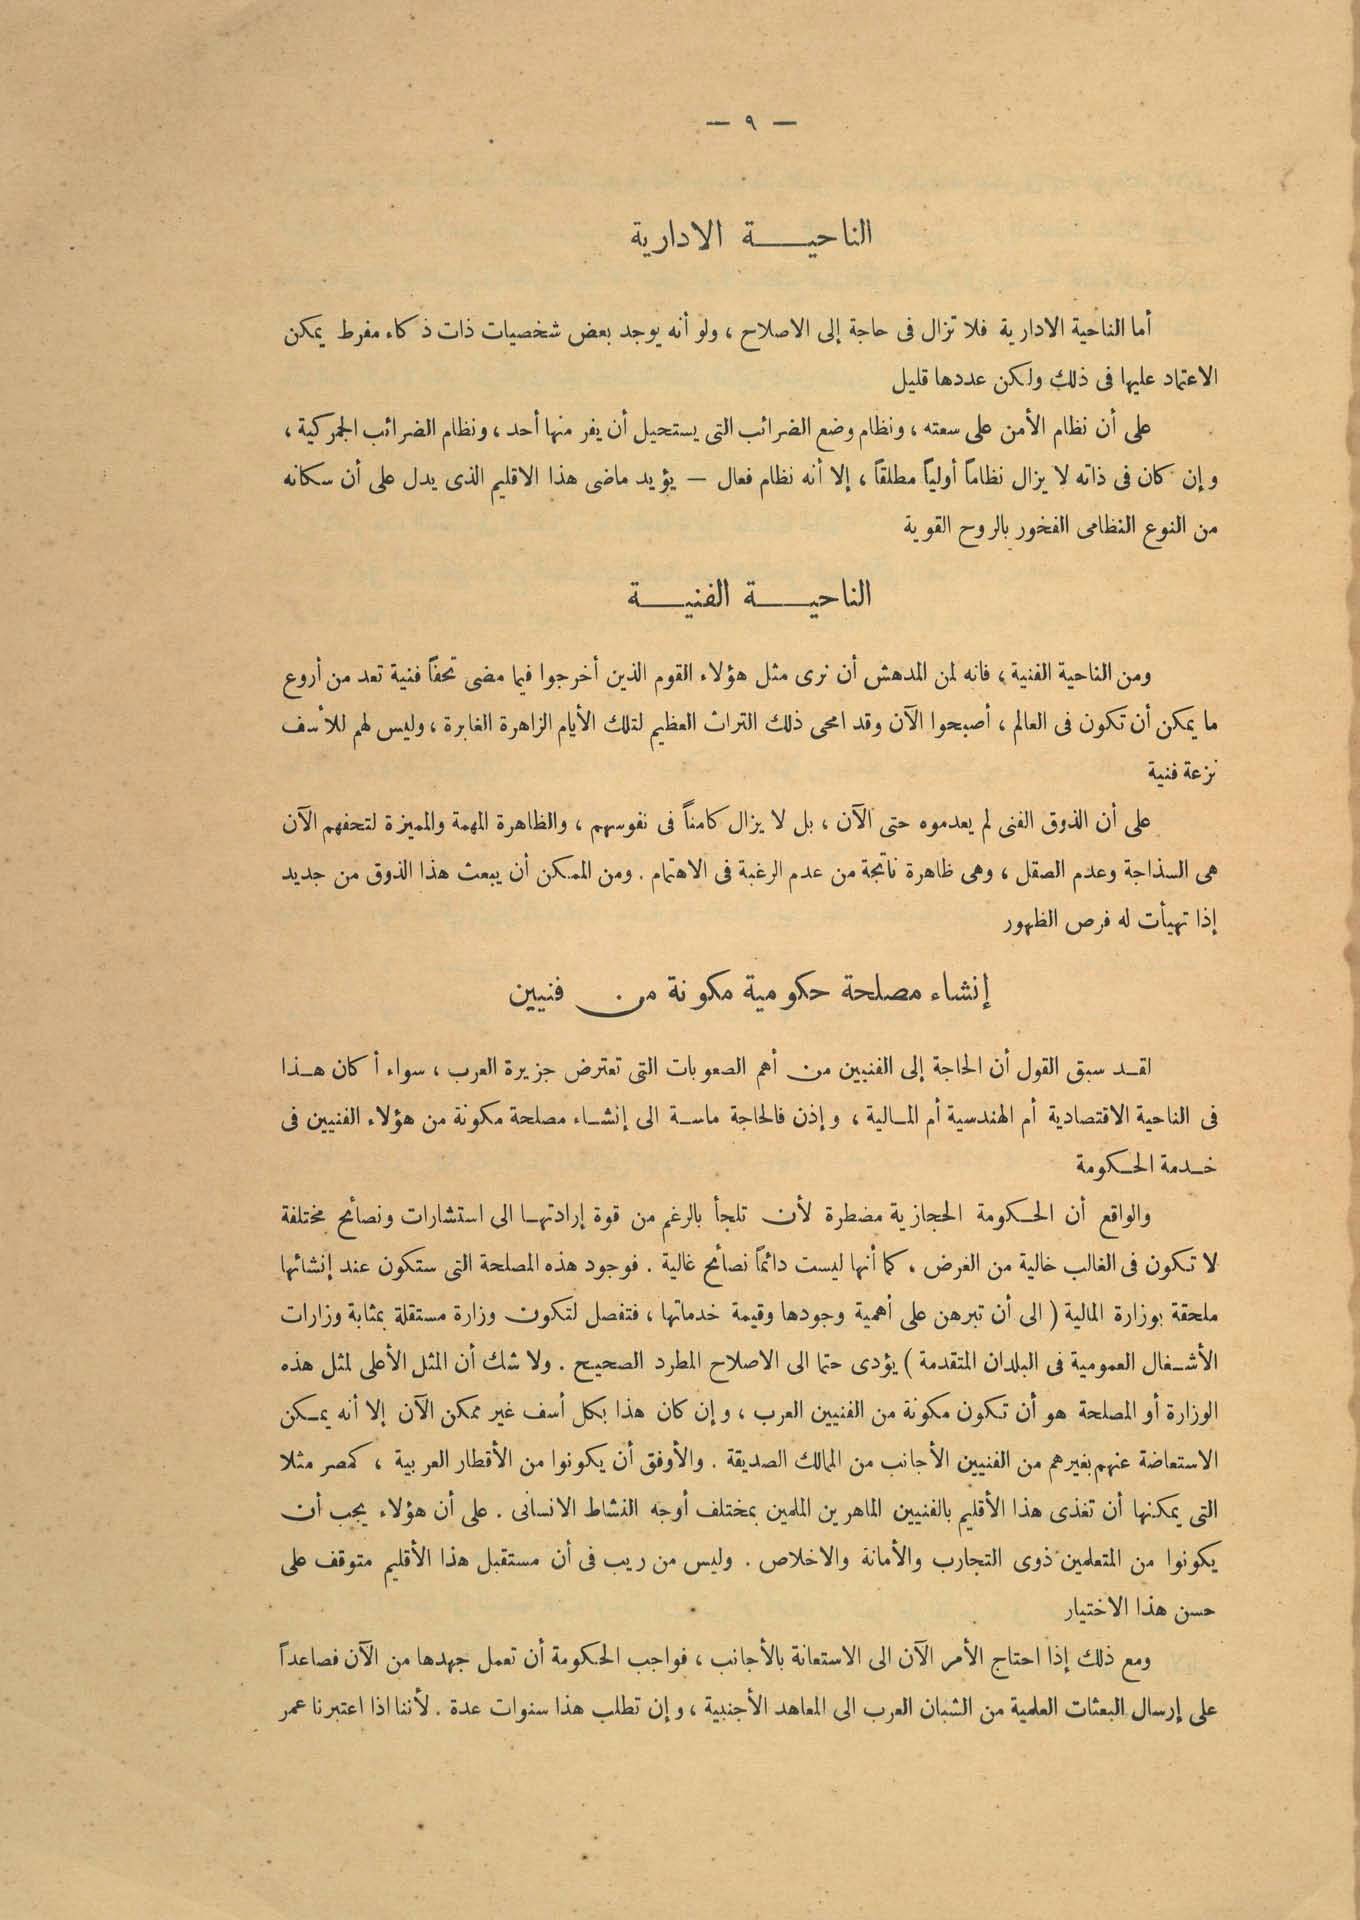 — ٩ —
الناحيـــة الادارية
أما الناحية الادارية فلا تزال فى حاجة إلى الاصلاح ، ولو أنه يوجد بعض شخصيات ذات ذكاء مفرط يمكن
الاعتماد عليها فى ذلك ولكن عددها قليل
على أن نظام الأمن على سعته ، ونظام وضع الضرائب التى يستحيل أن يفر منها أحد ، ونظام الضرائب الجمركية ،
وإن كان فى ذاته لا يزال نظاماً أولياً مطلقاً ، إلا أنه نظام فعال — يؤيد ماضى هذا الاقليم الذى يدل على أن سكانه
من النوع النظامى الفخور بالروح القوية
الناحيـــة الفنيـــة
ومن الناحية الفنية ، فانه لمن المدهش أن نرى مثل هؤلاء القوم الذين أخرجوا فيما مضى تحفاً فنية تعد من أروع
ما يمكن أن تكون فى العالم ، أصبحوا الآن وقد امحى ذلك التراث العظيم لتلك الأيام الزاهرة الغابرة ، وليس لهم للأسف
نزعة فنية
على أن الذوق الفنى لم يعدموه حتى الآن ، بل لا يزال كامناً فى نفوسهم ، والظاهرة المهمة والمميزة لتحفهم الآن
هى السذاجة وعدم الصقل ، وهى ظاهرة ناتجة من عدم الرغبة فى الاهتمام . ومن الممكن أن يبعث هذا الذوق من جديد
إذا تهيأت له فرص الظهور
إنشاء مصلحة حكومية مكونة من فنيين
لقـد سبق القول أن الحاجة إلى الفنيين من أهم الصعوبات التى تعترض جزيرة العرب ، سواء أكان هـذا
فى الناحية الاقتصادية أم الهندسية أم المـالية ، وإذن فالحاجة ماسـة الى إنشـاء مصلحة مكونة من هؤلاء الفنيين فى
خـدمة الحـكومة
والواقع أن الحـكومة الحجازية مضطرة لأن تلجأ بالرغم من قوة إرادتهـا الى استشارات ونصائح مختلفة
لا تكون فى الغالب خالية من الغرض ، كما أنها ليست دائماً نصائح غالية . فوجود هذه المصلحة التى ستكون عند إنشائها
ملحقة بوزارة المالية ( الى أن تبرهن على أهمية وجودها وقيمة خدماتها ، فتفصل لتكون وزارة مستقلة بمثابة وزارات
الأشـغال العمومية فى البلدان المتقدمة ) يؤدى حتما الى الاصلاح المطرد الصحيح . ولا شك أن المثل الأعلى لمثل هذه
الوزارة أو المصلحة هو أن تكون مكونة من الفنيين العرب ، وإن كان هذا بكل أسف غير ممكن الآن إلا أنه يمـكن
الاستعاضة عنهم بغيرهم من الفنيين الأجانب من الممالك الصديقة . والأوفق أن يكونوا من الأقطار العربية ، كمصر مثلا
التى يمكنها أن تغذى هذا الأقليم بالفنيين الماهرين الملمين بمختلف أوجه النشاط الانسانى . على أن هؤلاء يجب أن
يكونوا من المتعلمين ذوى التجارب والأمانة والاخلاص . وليس من ريب فى أن مستقبل هذا الأقليم متوقف على
حسن هذا الاختيار
ومع ذلك إذا احتاج الأمر الآن الى الاستعانة بالأجانب ، فواجب الحكومة أن تعمل جهدها من الآن فصاعداً
على إرسال البعثات العلمية من الشبان العرب الى المعاهد الأجنبية ، وإن تطلب هذا سنوات عدة . لأننا اذا اعتبرنا عمر